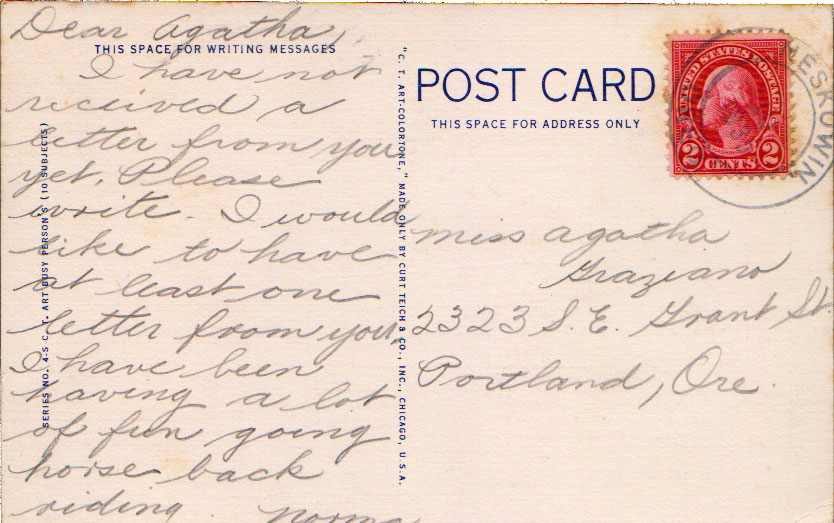 Dear Agatha,
THIS SPACE FOR WRITING MESSAGES
I have not
received a
letter from you
yet. Please
write. I would
like to have
at least one
letter from you
I have been
having a lot
of fun going
horse back
riding. Norma
SERIES NO. 4-S C.T. ART BUSY PERSON'S (10 SUBJECTS)
"C. T. ART-COLORTONE," MADE ONLY BY CURT TEICH & CO., INC., CHICAGO, U.S.A.
POST CARD
THIS SPACE FOR ADDRESS ONLY
UNITED STATES POSTAGE
2 CENTS 2
NESKOWIN
Miss Agatha
Graziano
2323 S.E. Grant St.
Portland, Ore.